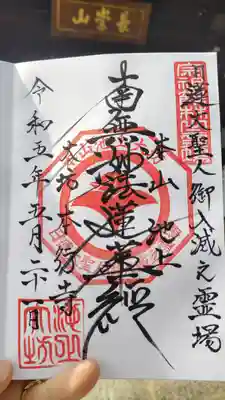 長崇山
日蓮大聖人御入滅之霊場
本山 池上
南無妙法蓮華経
大坊本行寺
令和五年五月二十一日